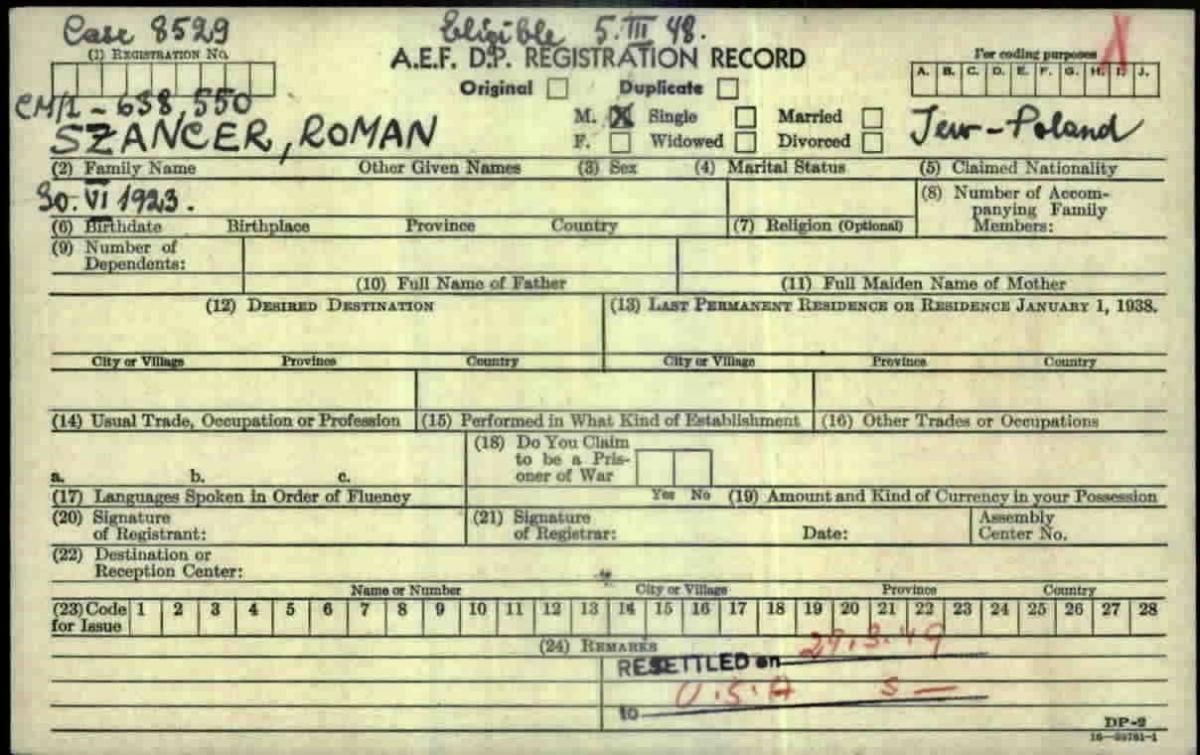 Case 8529 Eligible 5. III 48.
(1) REGISTRATION NO. A.E.F. D.P. REGISTRATION RECORD For coding purposes
Original Duplicate A. B. C. D. E. F. G. H. I. J.
CM/1 - 638,550
M. X Single Married
SZANCER, ROMAN F. Widowed Divorced Jew-Poland
(2) Family Name Other Given Names (3) Sex (4) Marital Status (5) Claimed Nationality
30. VI 1923. (8) Number of Accom-
panying Family
(6) Birthdate Birthplace Province Country (7) Religion (Optional) Members:
(9) Number of
Dependents:
(10) Full Name of Father (11) Full Maiden Name of Mother
(12) DESIRED DESTINATION (13) LAST PERMANENT RESIDENCE OR RESIDENCE JANUARY 1, 1938.
City or Village Province Country City or Village Province Country
(14) Usual Trade, Occupation or Profession (15) Performed in What Kind of Establishment (16) Other Trades or Occupations
(18) Do You Claim
to be a Pris-
a. b. c. oner of War
(17) Languages Spoken in Order of Fluency Yes No (19) Amount and Kind of Currency in your Possession
(20) Signature (21) Signature Assembly
of Registrant: of Registrar: Date: Center No.
(22) Destination or
Reception Center:
Name or Number City or Village Province Country
(23) Code 1 2 3 4 5 6 7 8 9 10 11 12 13 14 15 16 17 18 19 20 21 22 23 24 25 26 27 28
for Issue
(24) REMARKS
RESETTLED on 29.3.49
to U.S.A S —
DP-2